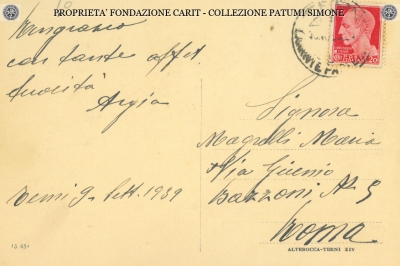 PROPRIETA' FONDAZIONE CARIT - COLLEZIONE PATUMI SIMONE
Ringrazio
con tante affet
tuosità
Argia
Terni 9 Sett. 1939
Signora
Magrelli Maria
Via Guerrio
Bazzoni, N 5
Roma
ALTEROCCA-TERNI XIV